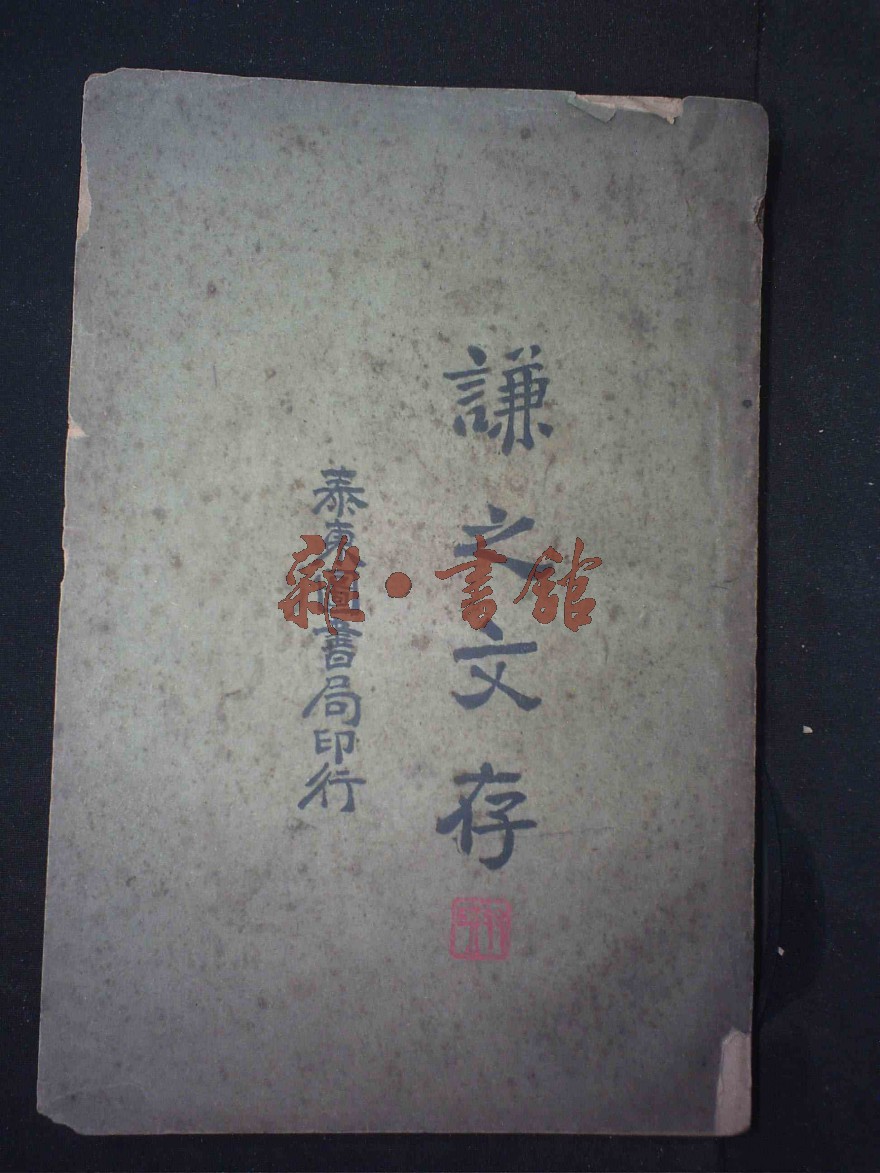 謙之文存
泰東圖書局印行
雜·書館